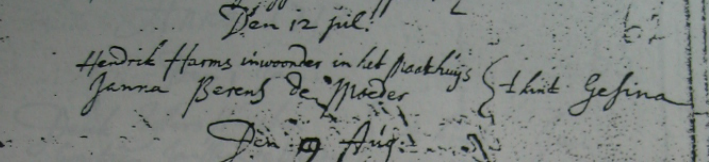 Den 12 jul:
Hendrik Harms inwoonder in het Raathuijs
Janna Berens de Moeder } t kint Gesina
Den 9 Aug:
62